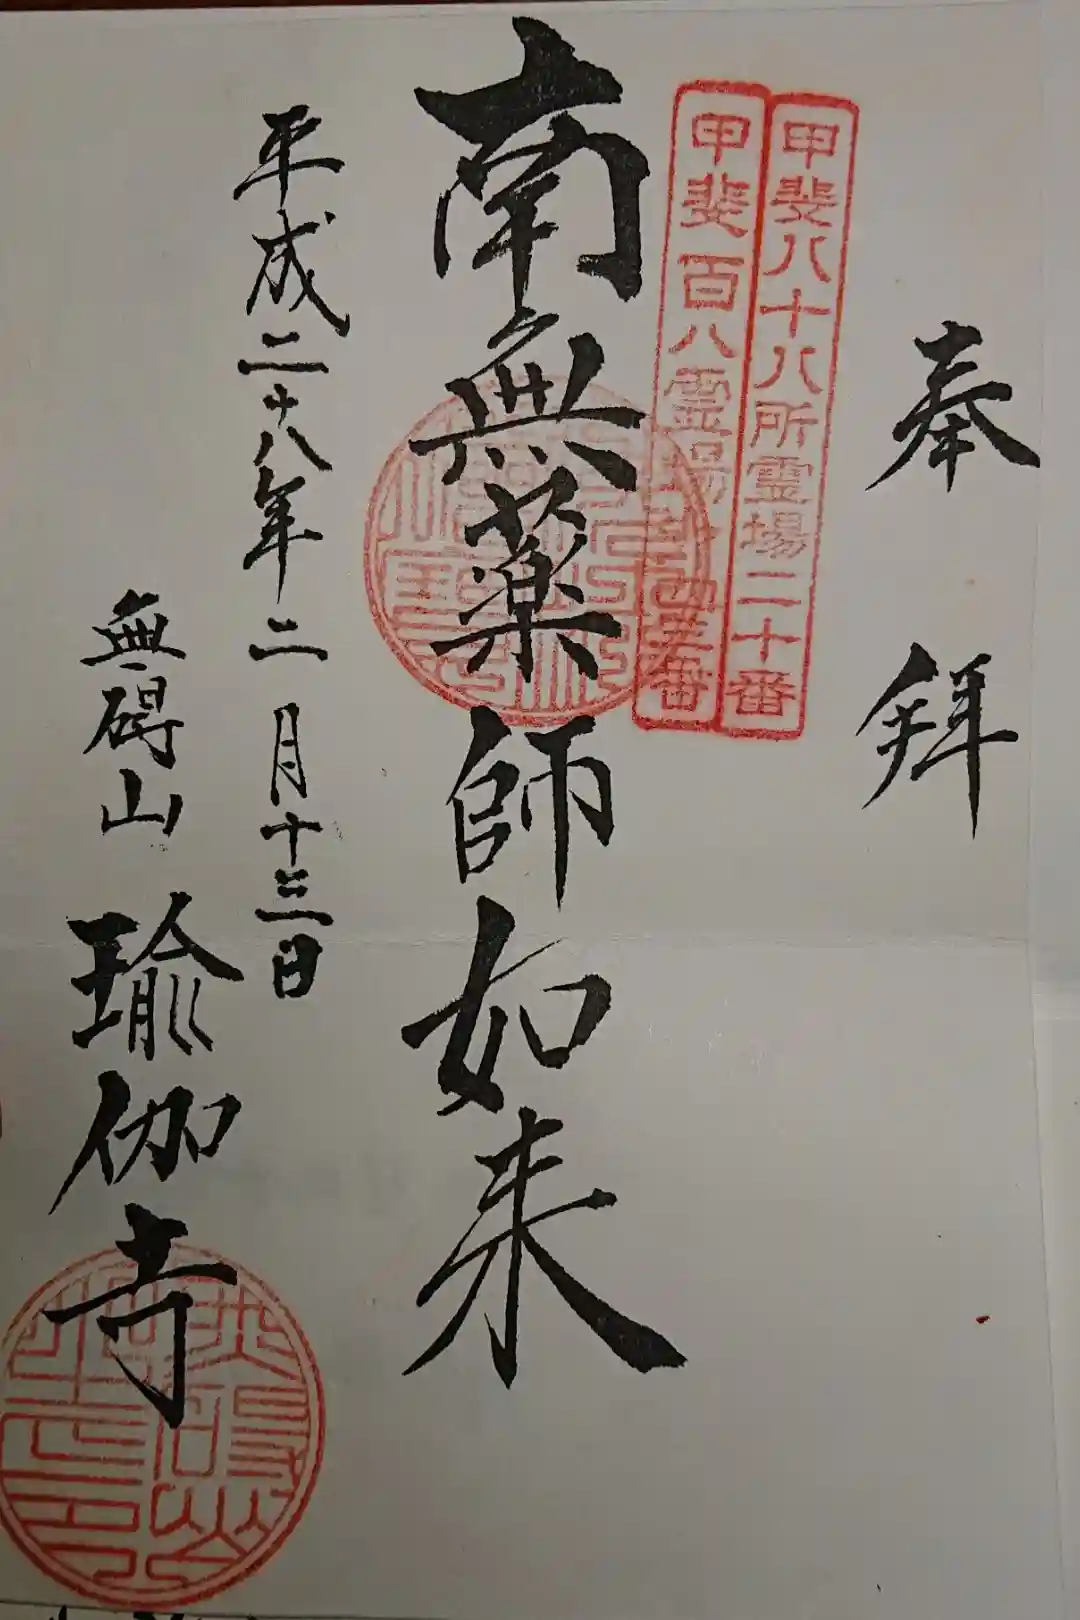 奉拜
甲斐八十八所霊場二十番
甲斐百八霊場
南無薬師如来
平成二十八年二月十三日
無碍山 瑜伽寺